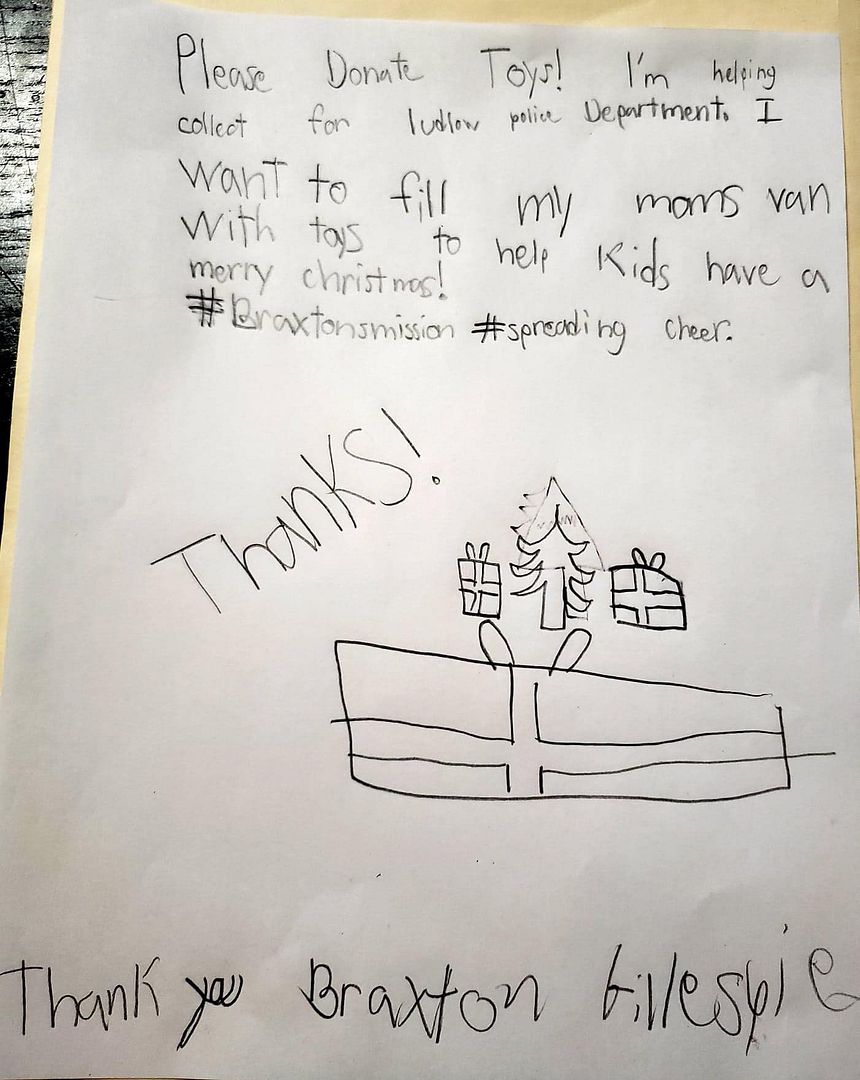 Please Donate Toys! I'm helping
collect for ludlow police Department. I
Want to fill my moms van
With toys to help Kids have a
merry christmas!
#Braxtonsmission #spreading cheer.
Thanks!
Thank you Braxton Gillespie